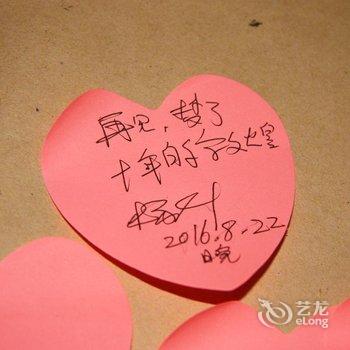 再见，梦了
十年的敦煌
2016.8.22
晚
艺龙
eLong